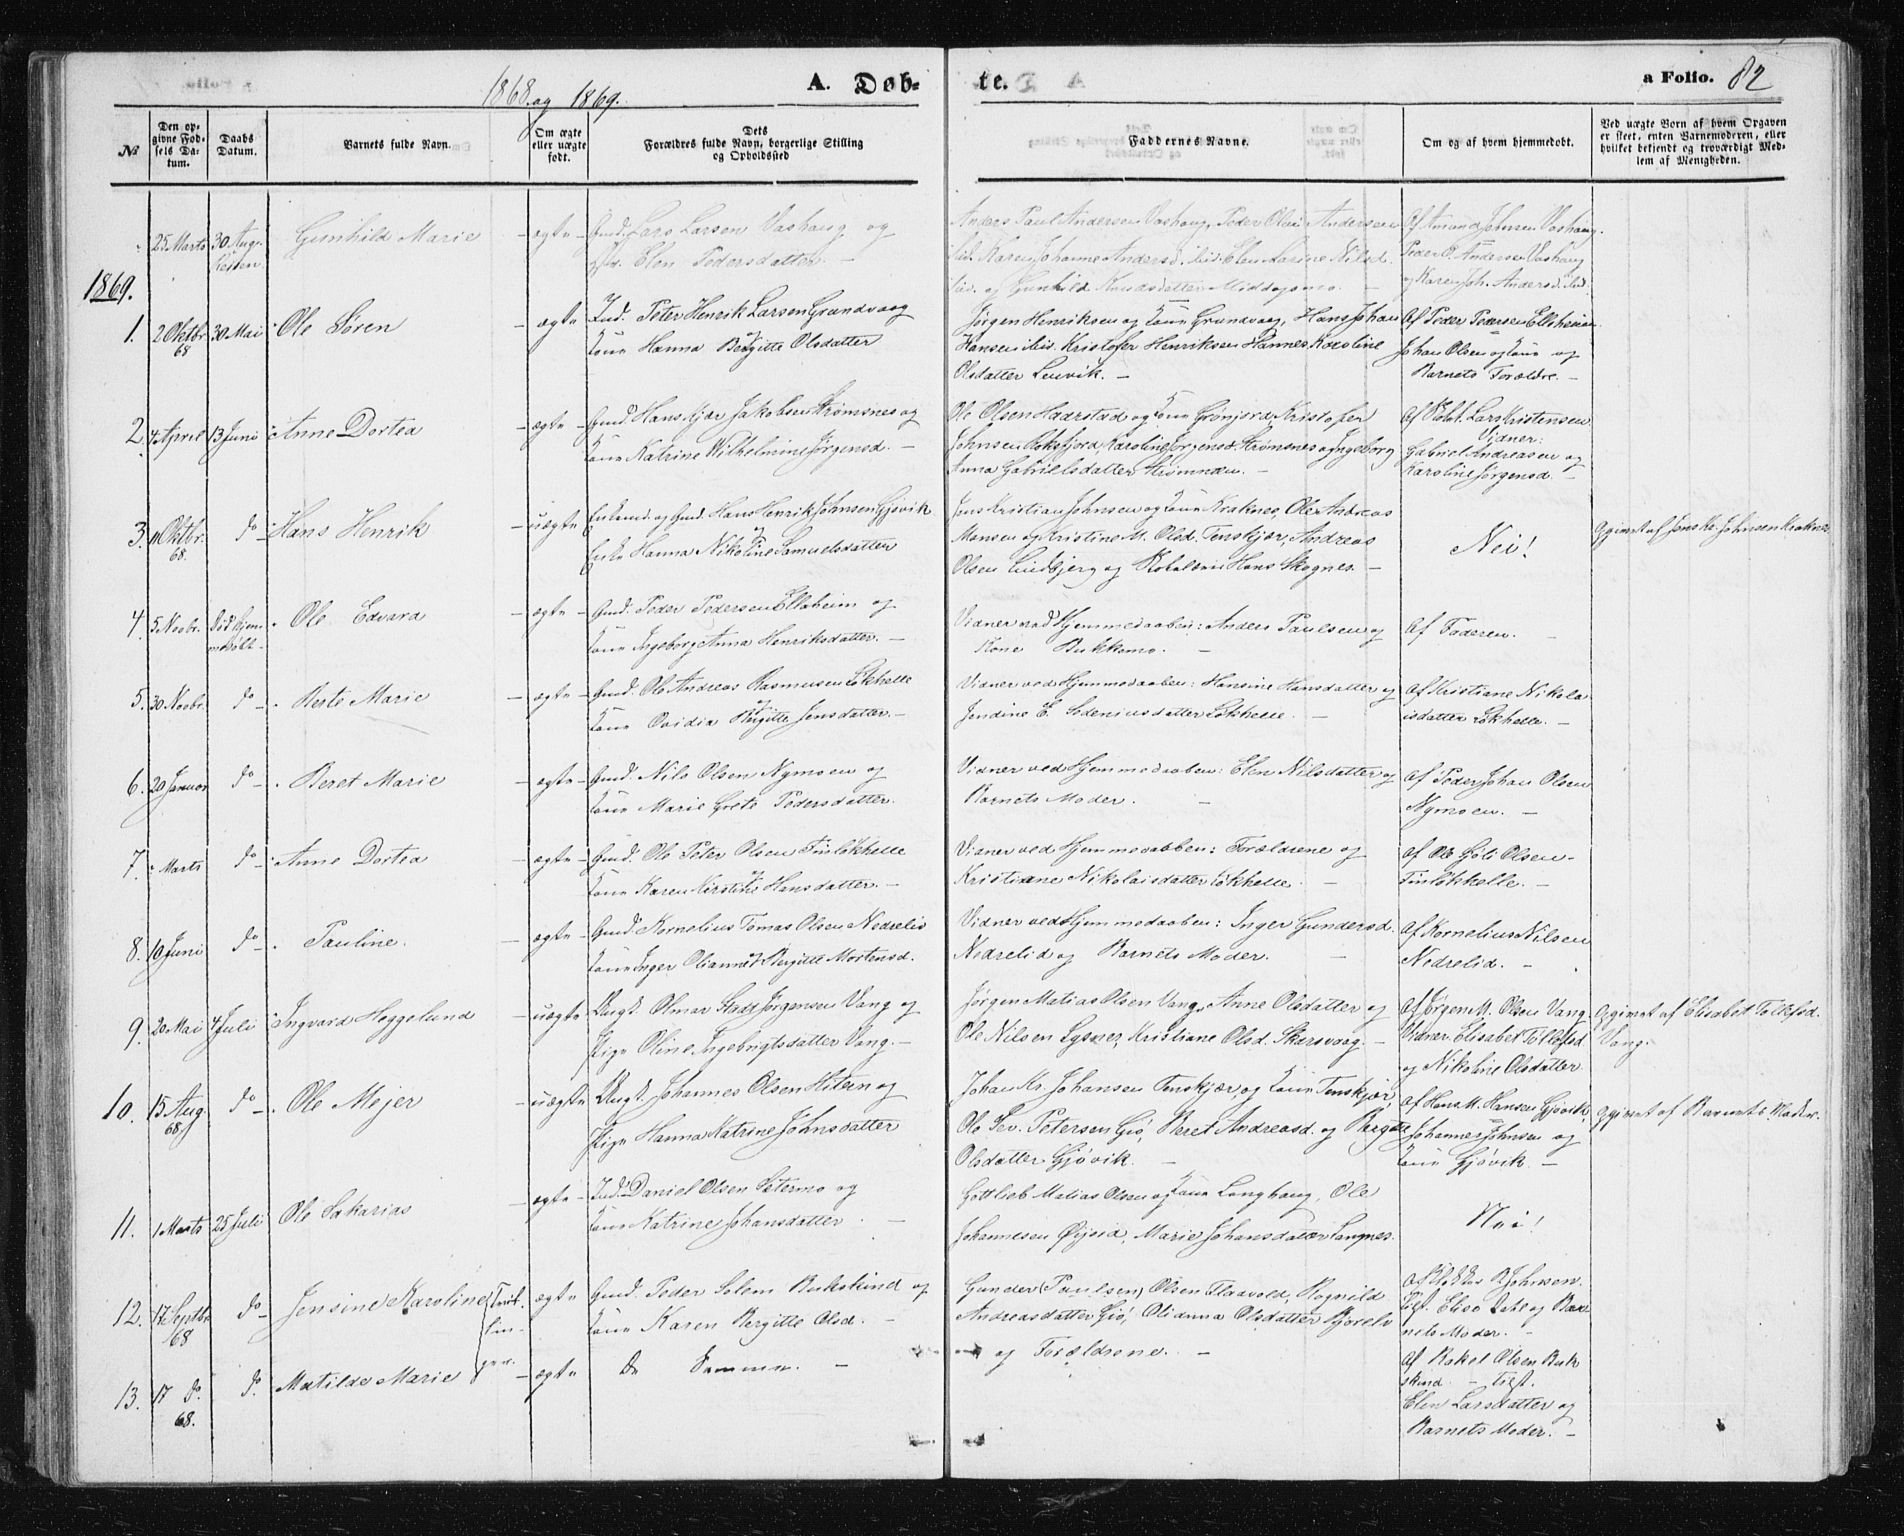 1868 og 1869.
A. Døb-
te.
a Folio. 82
No
Den op-
givne Fød-
sels Da-
tum.
Daabs
Datum.
Barnets fulde Navn.
Om ægte
eller uægte
født.
Dets
Forældres fulde Navn, borgerlige Stilling
og Opholdssted
Faddernes Navne.
Om og af hvem hjemmedøbt.
Ved uægte Børn af hvem Opgaven
er skeet, enten Barnemoderen, eller
hvilket bekjendt og troværdigt Med-
lem af Menigheden.
25 Marts 30 Aug. Gunhild Marie - ægte - Gmd. Lars Larsen Vashaug og
Elen Pedersdatter. -
Anders Paul Andersen Vashaug, Peder Olai Andersen
ibid. Karen Johanne Andersd. ibid. Elen Larine Nilsd.
ibid. og Gunhild Knudsdatter Middagsmo. -
Af Amund Johnsen Vashaug.
Peder O. Andersen Vashaug
og Karen Joh. Andersd. ibid.
1869.
1. 2 Oktbr. 68 30 Mai Ole Søren - ægte - Ind. Peter Henrik Larsen Grundvaag
Kone Hanna Bergitte Olsdatter
Jørgen Henriksen og Kone Grundvaag, Hans Johan
Hansen ibid. Kristofer Henriksen Hannes, Karoline
Olsdatter Lenvik. -
Af Peder Pedersen Elleheim.
Johan Olsen og Kone og
Barnets Forældre. -
2. 4 April 13 Juni Anne Dortea - ægte - Gmd. Hans Kjær Jakobsen Strømsnes og
Kone Katrine Wilhelmine Jørgensd. -
Ole Olsen Haarstad og Kone Grønjord, Kristofer
Johnsen Roksfjord, Karoline Jørgensd. Strømsnes og Ingeborg
Anna Gabrielsdatter Strømnæs. -
Af Lars Kristensen
Vidner:
Gabriel Andreasen og
Karoline Jørgensd. -
3. 11 Oktbr. 68. do - Hans Henrik - uægte - Enkemd. og Gmd. Hans Henrik Johnsen Gjøvik
og
Enke Hanna Nikoline Samuelsdatter
Jens Kristian Johnsen og Kone Kraknes, Ole Andreas
Monsen og Kristine M. Olsd. Tenskjær, Andreas
Olsen Lindbjerg og Hans Skognes. -
Nei!
Opgivet af Jens Kr. Johnsen Kraknes
4. 5 Novbr. Død hjem-
medøbt - Ole Edvard - ægte - Gmd. Peder Pedersen Elleheim og
Kone Ingeborg Anna Henriksdatter. -
Vidner ved Hjemmedaaben: Anders Paulsen og
Kone Bukkemo. -
Af Faderen. -
5. 30 Novbr. do - Berte Marie - ægte - Gmd. Ole Andreas Rasmusen Løkhelle
og
Kone Ovidia Birgitte Jensdatter. -
Vidner ved Hjemmedaaben: Hansine Hansdatter og
Jendine E. Sedeniusdatter Løkhelle. -
Af Kristiane Nikola-
isdatter Løkhelle. -
6. 20 Januar do - Beret Marie - ægte - Gmd. Nils Olsen Nymoen og
Kone Marie Grete Pedersdatter.
Vidner ved Hjemmedaaben: Elen Nilsdatter og
Barnets Moder. -
Af Peder Johan Olsen
Nymoen. -
7. Marts do - Anne Dortea - ægte - Gmd. Ole Peter Olsen Finløkhelle
og
Kone Karen Kirstine Hansdatter. -
Vidner ved Hjemmedaaben: Forældrene og
Kristiane Nikolaisdatter Løkhelle. -
Af Ole Goli Olsen
Finløkhelle. -
8. 10 Juni do - Pauline. - ægte - Gmd. Kornelius Tomas Olsen Nedrelid
Kone Inger Olianna Bergitte Mortensd.
Vidner ved Hjemmedaaben: Inger Gundersd.
Nedrelid og Barnets Moder. -
Af Kornelius Nilsen
Nedrelid. -
9. 20 Mai 4 Juli Ingvard Heggelund - uægte - Ungk. Olmar Stadt Jørgensen Vang og
Pige Oline Ingebrigtsdatter Vang. -
Jørgen Matias Olsen Vang, Anne Olsdatter og
Ole Nilsen Lysnes, Kristiane Olsd. Skarsvaag. -
Af Jørgen M. Olsen Vang
Vidner Elisabet Tollefsd.
og Nikoline Olsdatter
Opgivet af Elisabet Tollefsd.
Vang.
10. 15 Aug. 68 do - Ole Mejer - uægte Ungk. Johannes Olsen Hitern og
Pige Hanna Katrine Johnsdatter
Johan Kr. Johansen Tenskjær og Kone Tenskjær,
Ole Sev. Petersen Giø, Beret Andreasd. og Bergitte
Olsdatter Gjøvik. -
Af Hans M. Hansen Gjøvik,
Johannes Johnsen og
Kone Gjøvik. -
Opgivet af Barnets Moder.
11. 1 Marts 25 Juli Ole Sakarias - ægte - Ind. Daniel Olsen Setermo og
Kone Katrine Johansdatter. -
Gottlieb Matias Olsen og Kone Langhaug, Ole
Johannesen Øijord, Marie Johansdatter Langnes.
Nei!
12. 17 Septbr. 68 do - Jensine Karoline Tvil-
lin-
ger. ægte Gmd. Peder Solem Bukskind og
Kone Karen Bergitte Olsd. -
Gunder (Paulsen) Olsen Flaavold, Rognild
Andreasdatter Giø, Olianna Olsdatter Bjorelv
og Forældrene. -
Af B. Johnsen.
Test. Elise Dahl og Bar-
nets Moder. -
13. 17 do. 68. do. Matilde Marie - ægte - De Samme. -
Af Rakel Olsen Buk-
skind. - Test.
Elen Larsdatter og
Barnets Moder. -